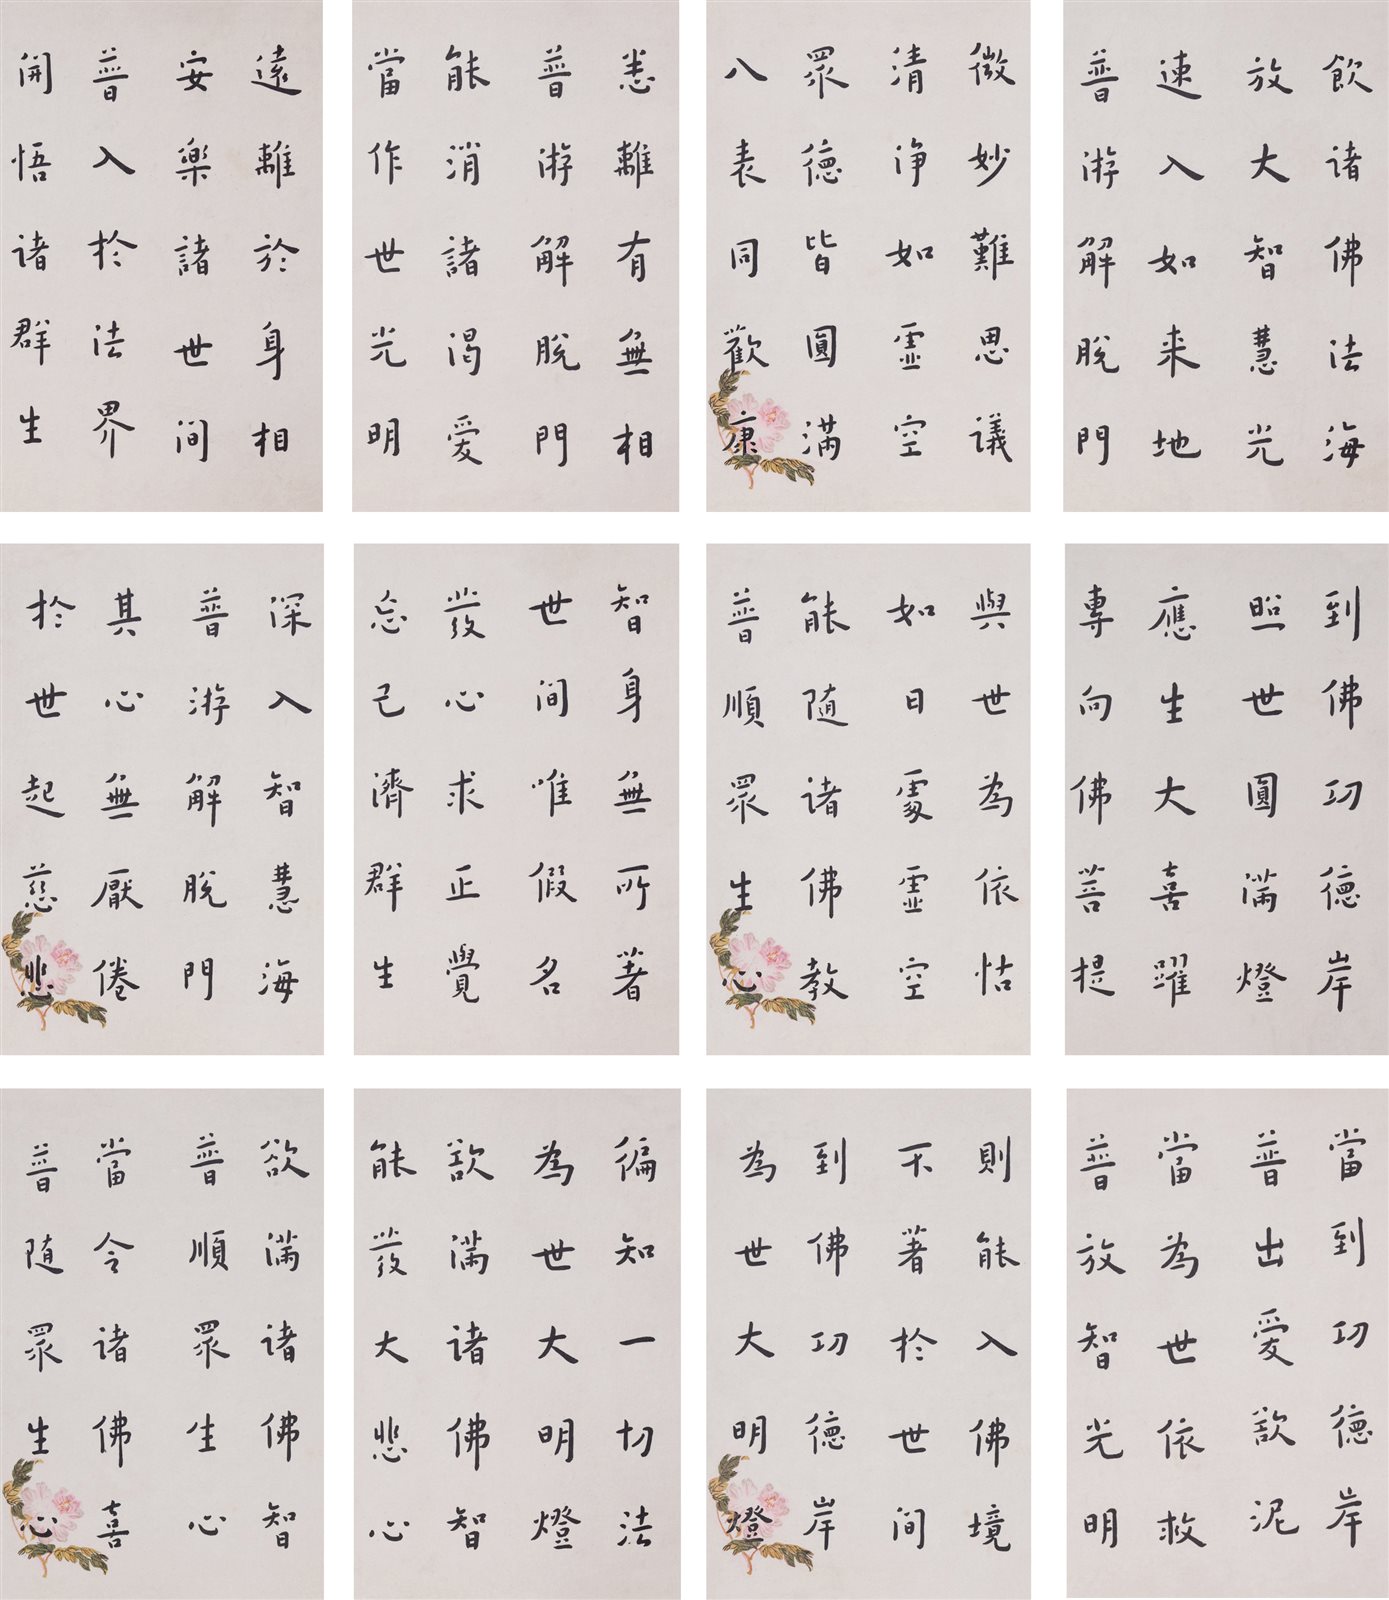 飲諸佛法海
放大智慧光
速入如来地
普游解脫門
微妙難思議
清净如虛空
眾德皆圓滿
八表同歡康
悉離有無相
普游解脫門
能消諸渴愛
當作世光明
遠離於身相
安樂諸世间
普入於法界
開悟诸群生
到佛功德岸
照世圓滿燈
應生大喜躍
專向佛菩提
與世為依怙
如日處虛空
能随诸佛教
普順眾生心
智身無所著
世间唯假名
發心求正覺
忘己濟群生
深入智慧海
普游解脫門
其心無厭倦
於世起慈悲
當到功德岸
普出愛欲泥
當為世依救
普放智光明
則能入佛境
不著於世间
到佛功德岸
為世大明燈
徧知一切法
為世大明燈
欲滿诸佛智
能發大悲心
欲滿诸佛智
普順眾生心
當令诸佛喜
普随眾生心